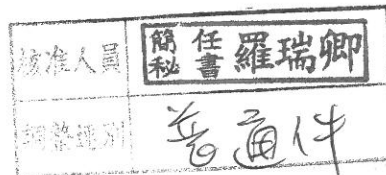 核准人員 簡任秘書 羅瑞卿
調整類別 普通件